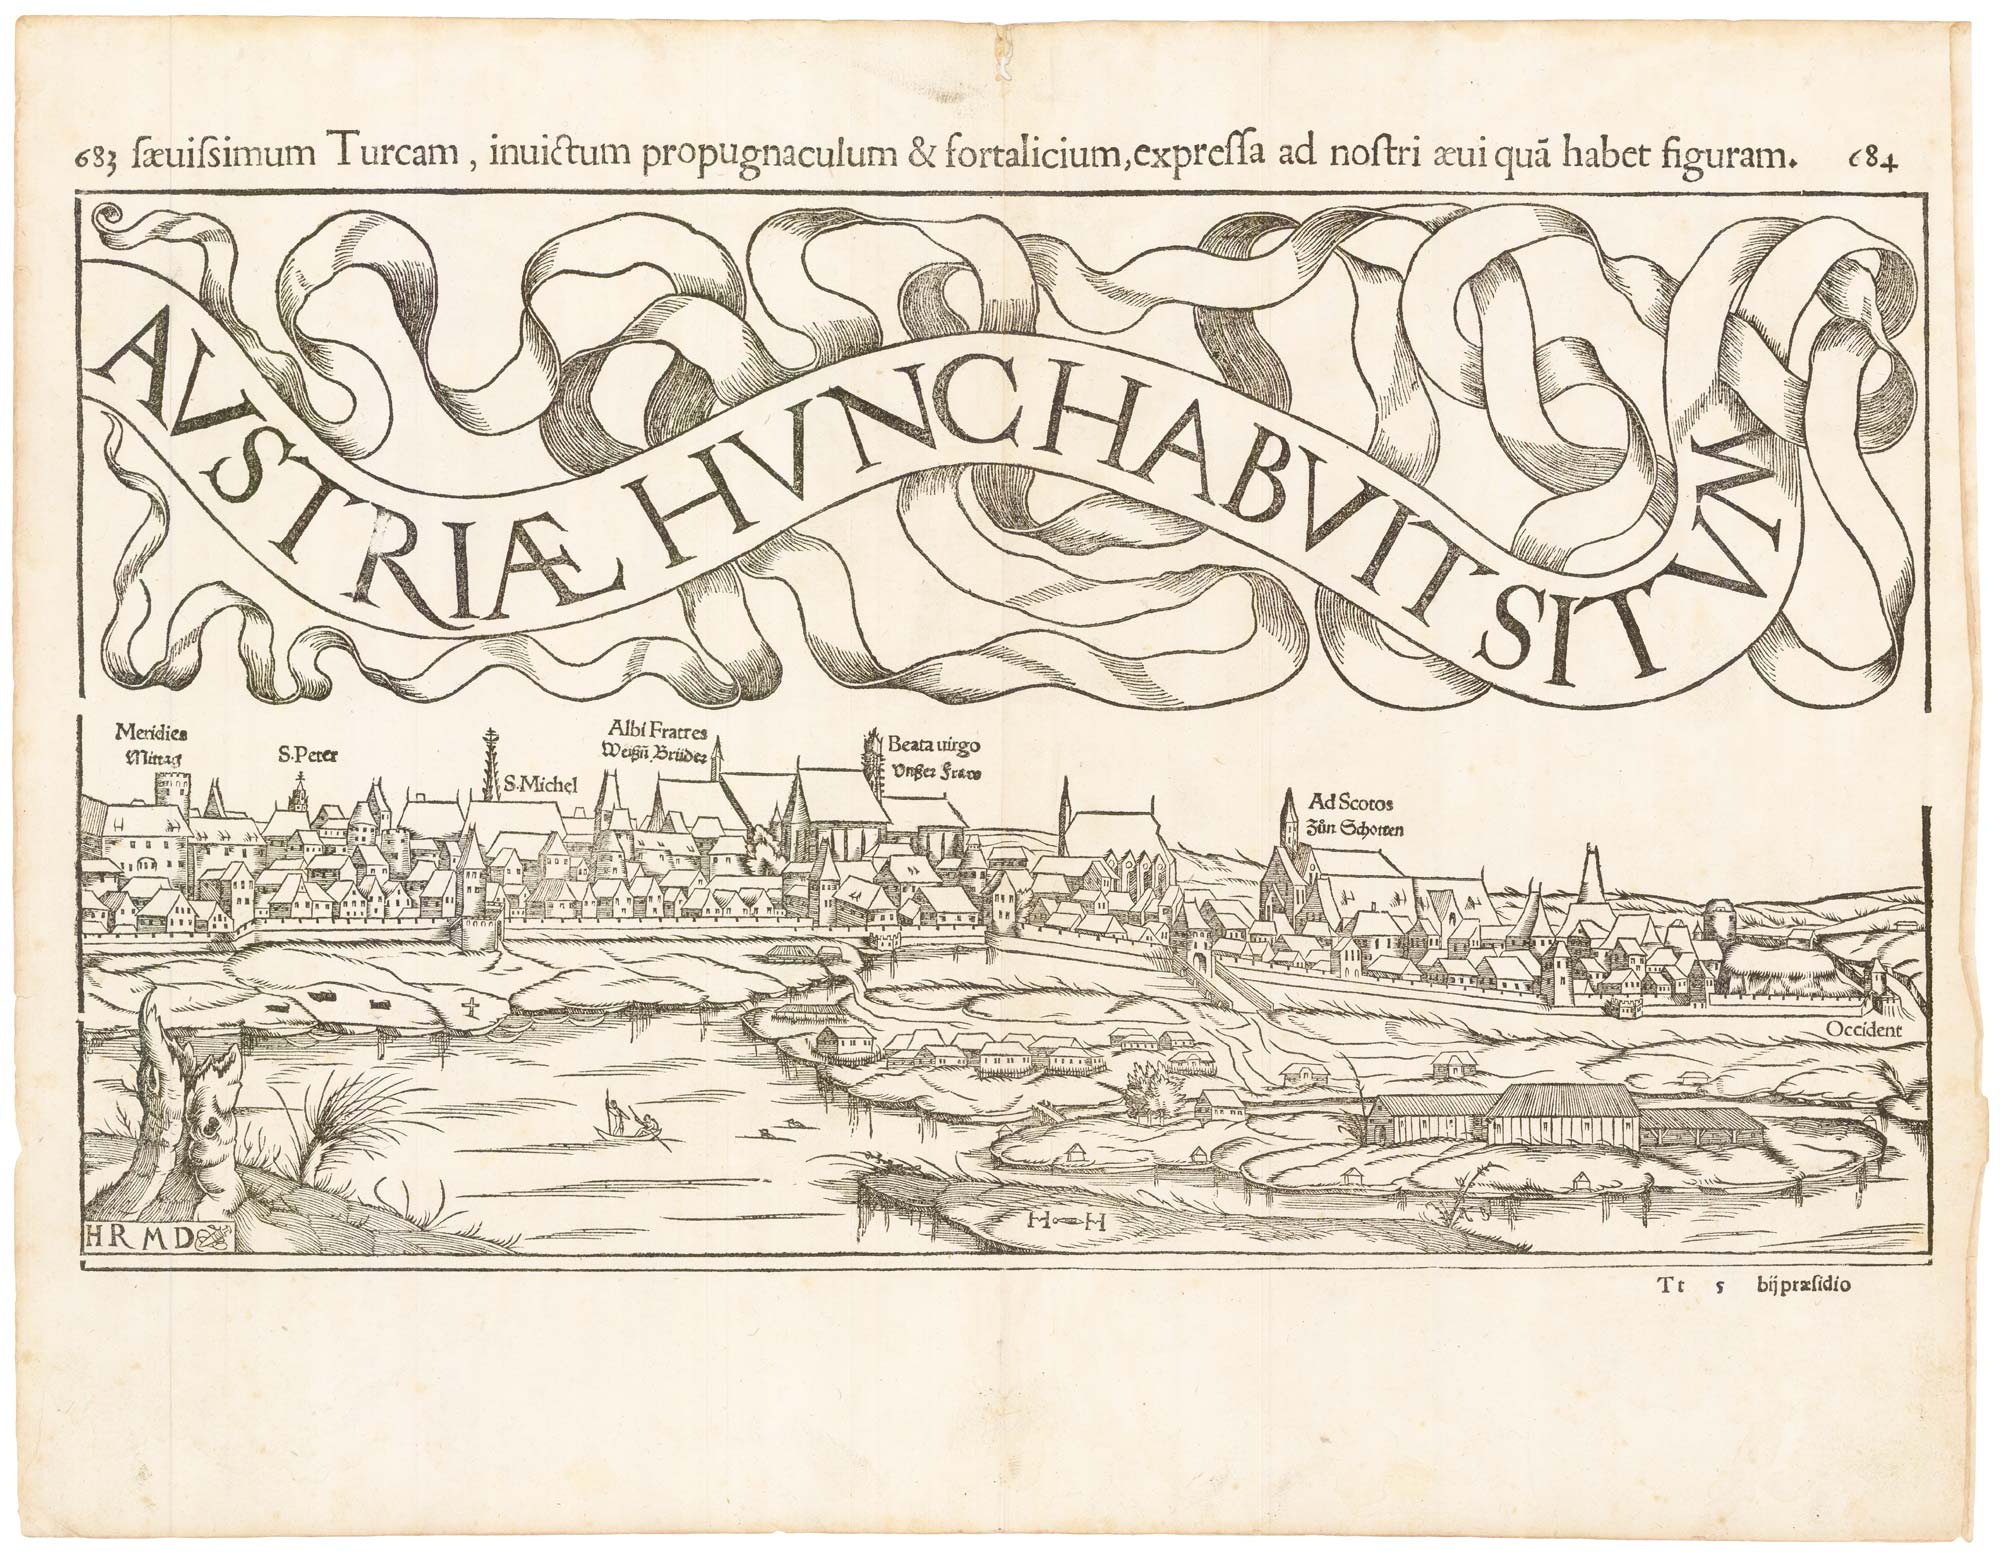 683 ſæuiſsimum Turcam, inuictum propugnaculum & fortalicium, expreſſa ad noſtri æui quã habet figuram. 684
AVSTRIÆ HVNC HABVIT SITVM
Meridies
Mittag
S. Peter
S. Michel
Albi Fratres
Weißñ Brüder
Beata uirgo
Vnßer Fraw
Ad Scotos
Zůn Schotten
Occident
HRMD
H H
Tt 5 bij præſidio